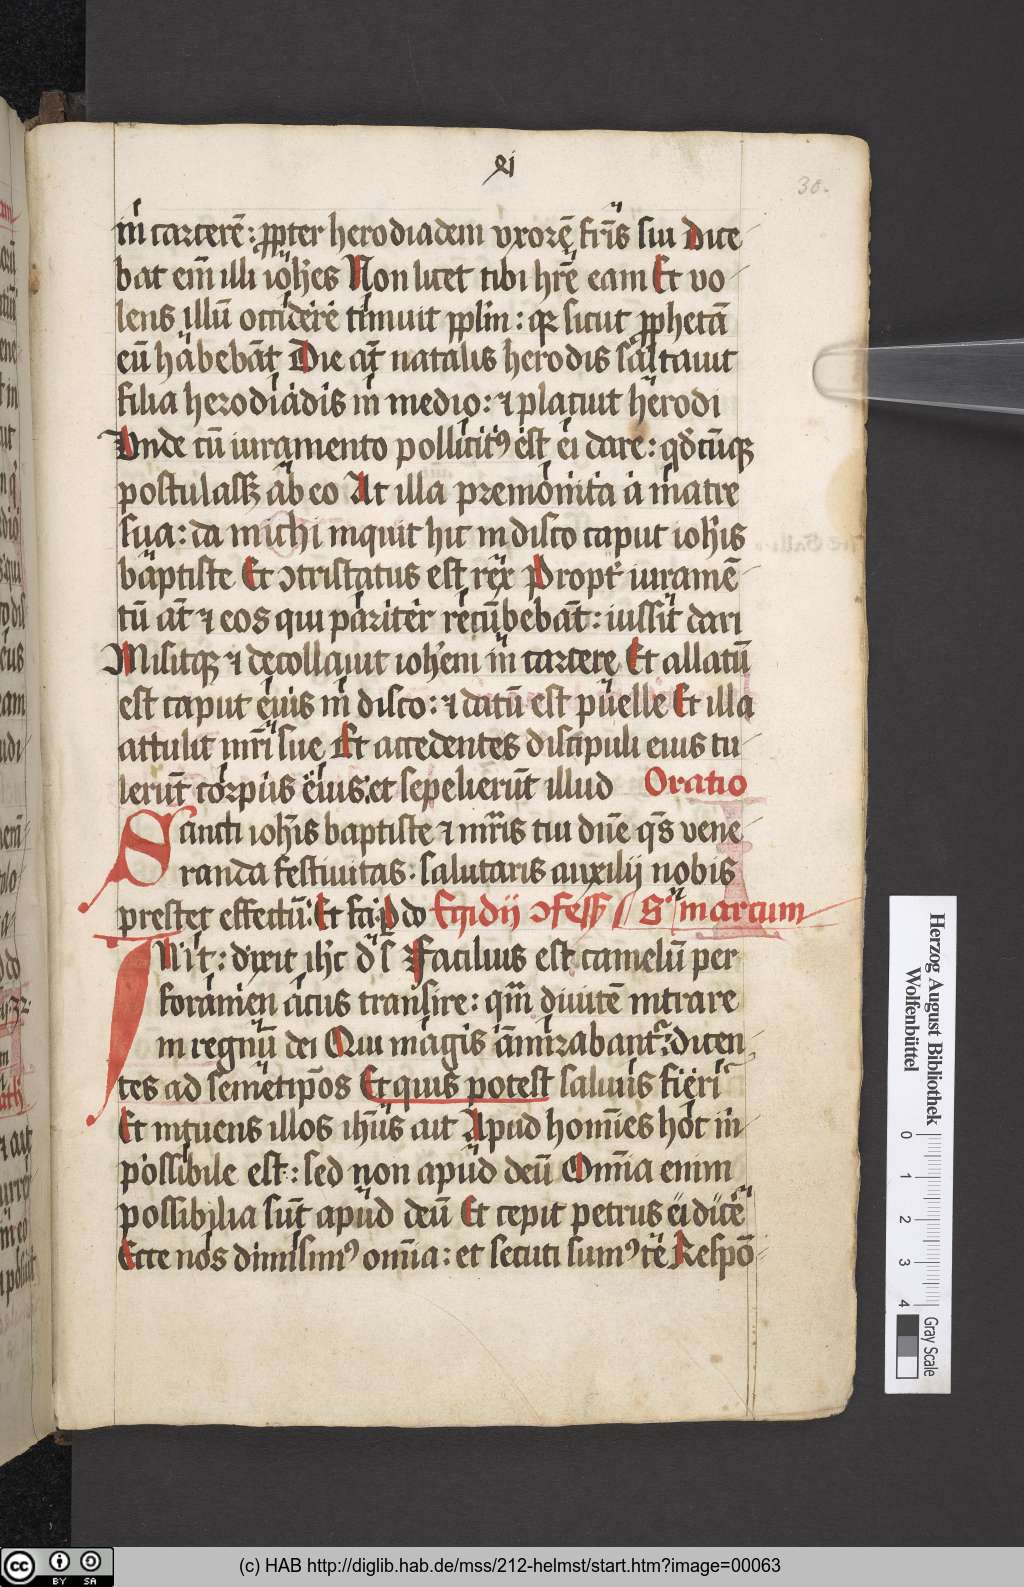 xi
30.
in carcerē: ꝓpter herodiadem vxorē fr̄is sui Dice
bat em̄ illi ioh̄es Non licet tibi hr̄e eam Et vo
lens illū occidere timuit ppl̄m: qꝛ sicut ꝓphetā
eū habebāt Die aūt natalis herodis saltauit
filia herodiadis in medio: ⁊ placuit herodi
Unde cū iuramento pollicitꝰ est ei dare: qd̄cūqꝫ
postulassꝫ ab eo At illa premonita a matre
sua: da michi inquit hic in disco caput ioh̄is
baptiste Et ↄtristatus est rex Propt̄ iuramē
tū aūt ⁊ eos qui pariter recūbebāt: iussit dari
Misitqꝫ ⁊ decollauit ioh̄em in carcere Et allatū
est caput eius in disco: ⁊ datū est puelle Et illa
attulit mr̄i sue Et accedentes discipuli eius tu
lerūt corpus eius: et sepelierūt illud Oratio
Sancti ioh̄is baptiste ⁊ mr̄is tui dn̄e qs̄ vene
randa festiuitas. salutaris auxilij nobis
prestet effectū. Et Egidij ↄfess̄ marcum
dixit ih̄c Facilius est camelū per
foramen acus transire: qm̄ diuitē intrare
in regnū dei Qui magis āmirabant̄: dicen
tes ad semetip̄os Et quis potest saluus fieri
Et intuens illos ih̄us ait Apud homīes hoc in
possibile est: sed non apud deū Omīa enim
possibilia sūt apud deū Et cepit petrus ei dicē
Ecce nos dimisimꝰ omīa: et secuti sumꝰ te Respō
Herzog August Bibliothek
Wolfenbüttel
0 1 2 3 4
Gray Scale
cc BY SA
(c) HAB http://diglib.hab.de/mss/212-helmst/start.htm?image=00063